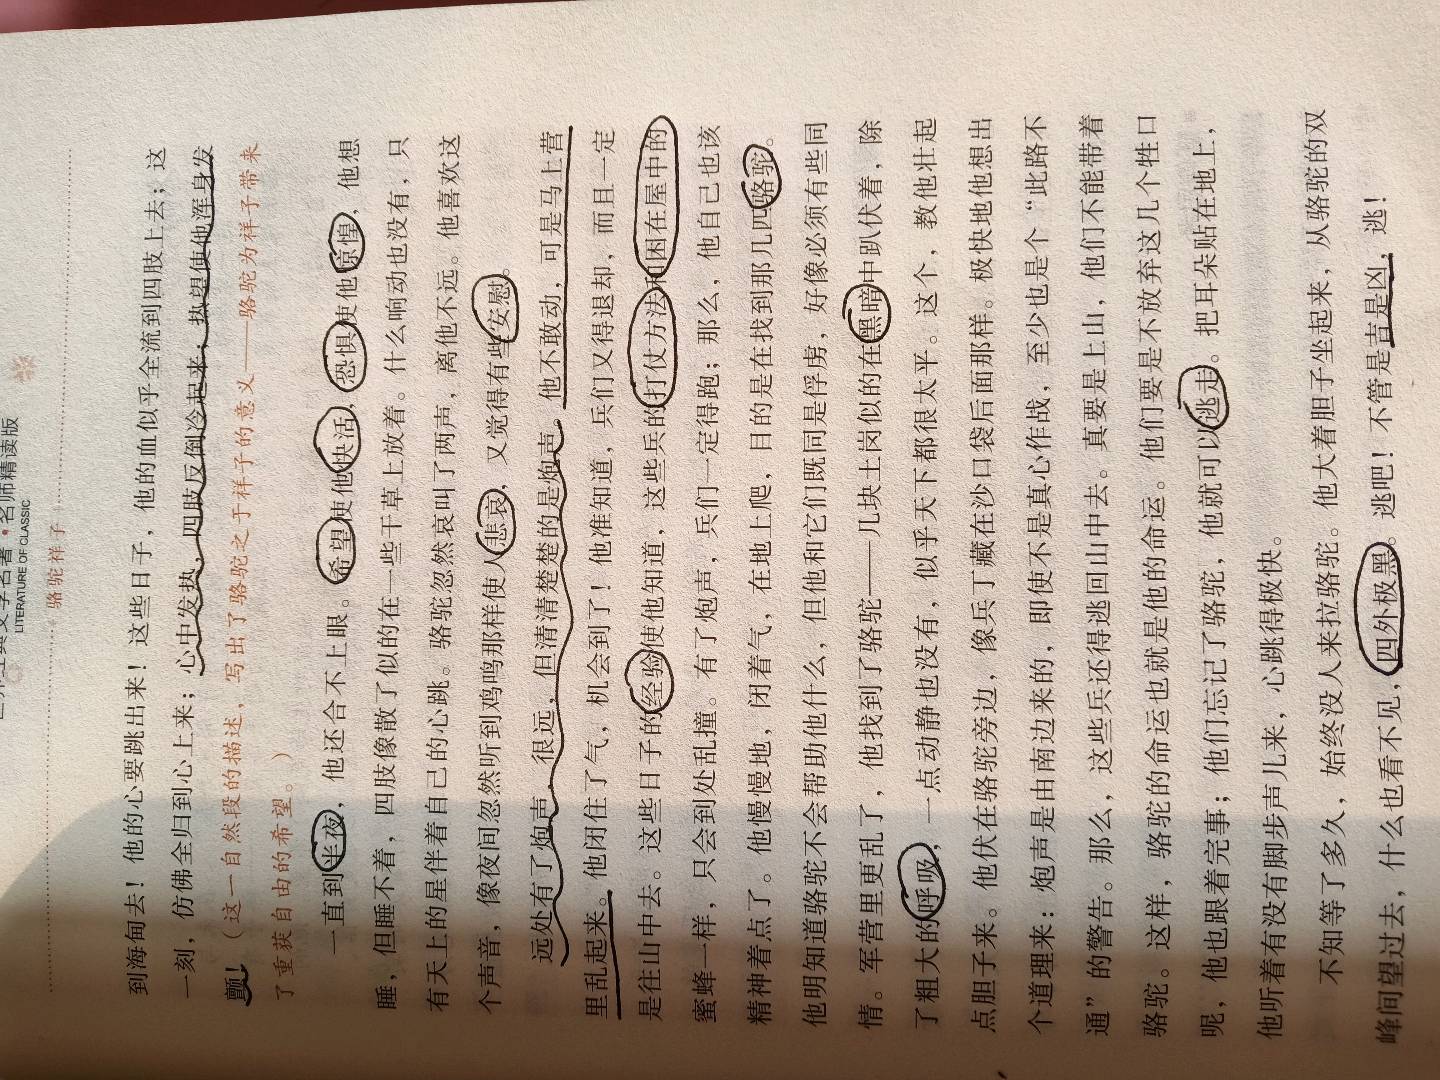 文学名著·名师精读版
LITERATURE OF CLASSIC
骆驼祥子
到海甸去！他的心要跳出来！这些日子，他的血似乎全流到四肢上去；这
一刻，仿佛全归到心上来；心中发热，四肢反倒冷起来；热望使他浑身发
颤！（这一自然段的描述，写出了骆驼之于祥子的意义——骆驼为祥子带来
了重获自由的希望。）
一直到半夜，他还合不上眼。希望使他快活，恐惧使他惊惶，他想
睡，但睡不着，四肢像散了似的在一些干草上放着。什么响动也没有，只
有天上的星伴着自己的心跳。骆驼忽然哀叫了两声，离他不远。他喜欢这
个声音，像夜间忽然听到鸡鸣那样使人悲哀，又觉得有些安慰。
远处有了炮声，很远，但清清楚楚的是炮声。他不敢动，可是马上营
里乱起来。他闭住了气，机会到了！他准知道，兵们又得退却，而且一定
是往山中去。这些日子的经验使他知道，这些兵的打仗方法和困在屋中的
蜜蜂一样，只会到处乱撞。有了炮声，兵们一定得跑；那么，他自己也该
精神着点了。他慢慢地，闭着气，在地上爬，目的是在找到那几匹骆驼。
他明知道骆驼不会帮助他什么，但他和它们既同是俘虏，好像必须有些同
情。军营里更乱了，他找到了骆驼——几块土岗似的在黑暗中趴伏着，除
了粗大的呼吸，一点动静也没有，似乎天下都很太平。这个，教他壮起
点胆子来。他伏在骆驼旁边，像兵丁藏在沙口袋后面那样。极快地他想出
个道理来：炮声是由南边来的，即使不是真心作战，至少也是个“此路不
通”的警告。那么，这些兵还得逃回山中去。真要是上山，他们不能带着
骆驼。这样，骆驼的命运也就是他的命运。他们要是不放弃这几个牲口
呢，他也跟着完事；他们忘记了骆驼，他就可以逃走。把耳朵贴在地上，
他听着有没有脚步声儿来，心跳得极快。
不知等了多久，始终没人来拉骆驼。他大着胆子坐起来，从骆驼的双
峰间望过去，什么也看不见，四外极黑。逃吧！不管是吉是凶，逃！